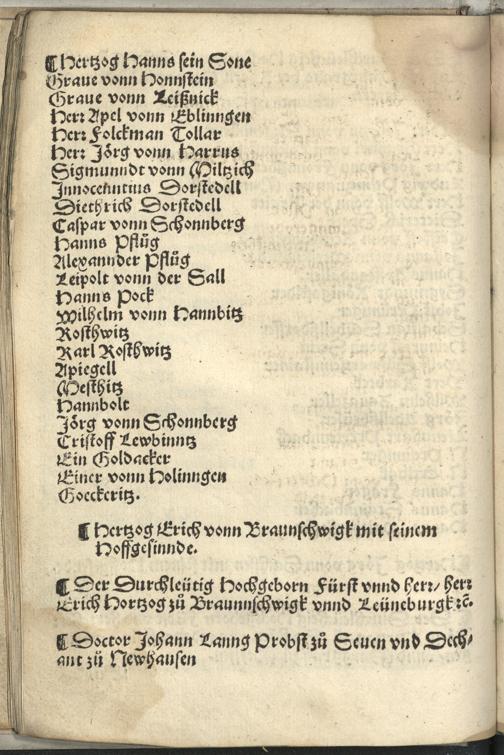 ¶ Hertzog Hanns sein Sone
Graue vonn Honnstein
Graue vonn Leißnick
Herr Apel vonn Eblinngen
Herr Folckman Tollar
Herr Jörg vonn Harrus
Sigmunndt vonn Miltzich
Innocenntius Dorstedell
Diethrich Dorstedell
Caspar vonn Schonnberg
Hanns Pflüg
Alexannder Pflüg
Leipolt vonn der Sall
Hanns Pock
Wilhelm vonn Hannbitz
Rosthwitz
Karl Rosthwitz
Apiegell
Mesthitz
Hannbolt
Jörg vonn Schonnberg
Cristoff Lewbinntz
Ein Goldacker
Einer vonn Holinngen
Goeckeritz.
¶ Hertzog Erich vonn Braunschwigk mit seinem
Hoffgesinnde.
¶ Der Durchleütig Hochgeborn Fürst vnnd herr/ herr
Erich Hortzog zů Braunnschwigk vnnd Leüneburgk ꝛc̄.
¶ Doctor Johann Lanng Probst zů Seuen vnd Dech⸗
ant zů Newhausen